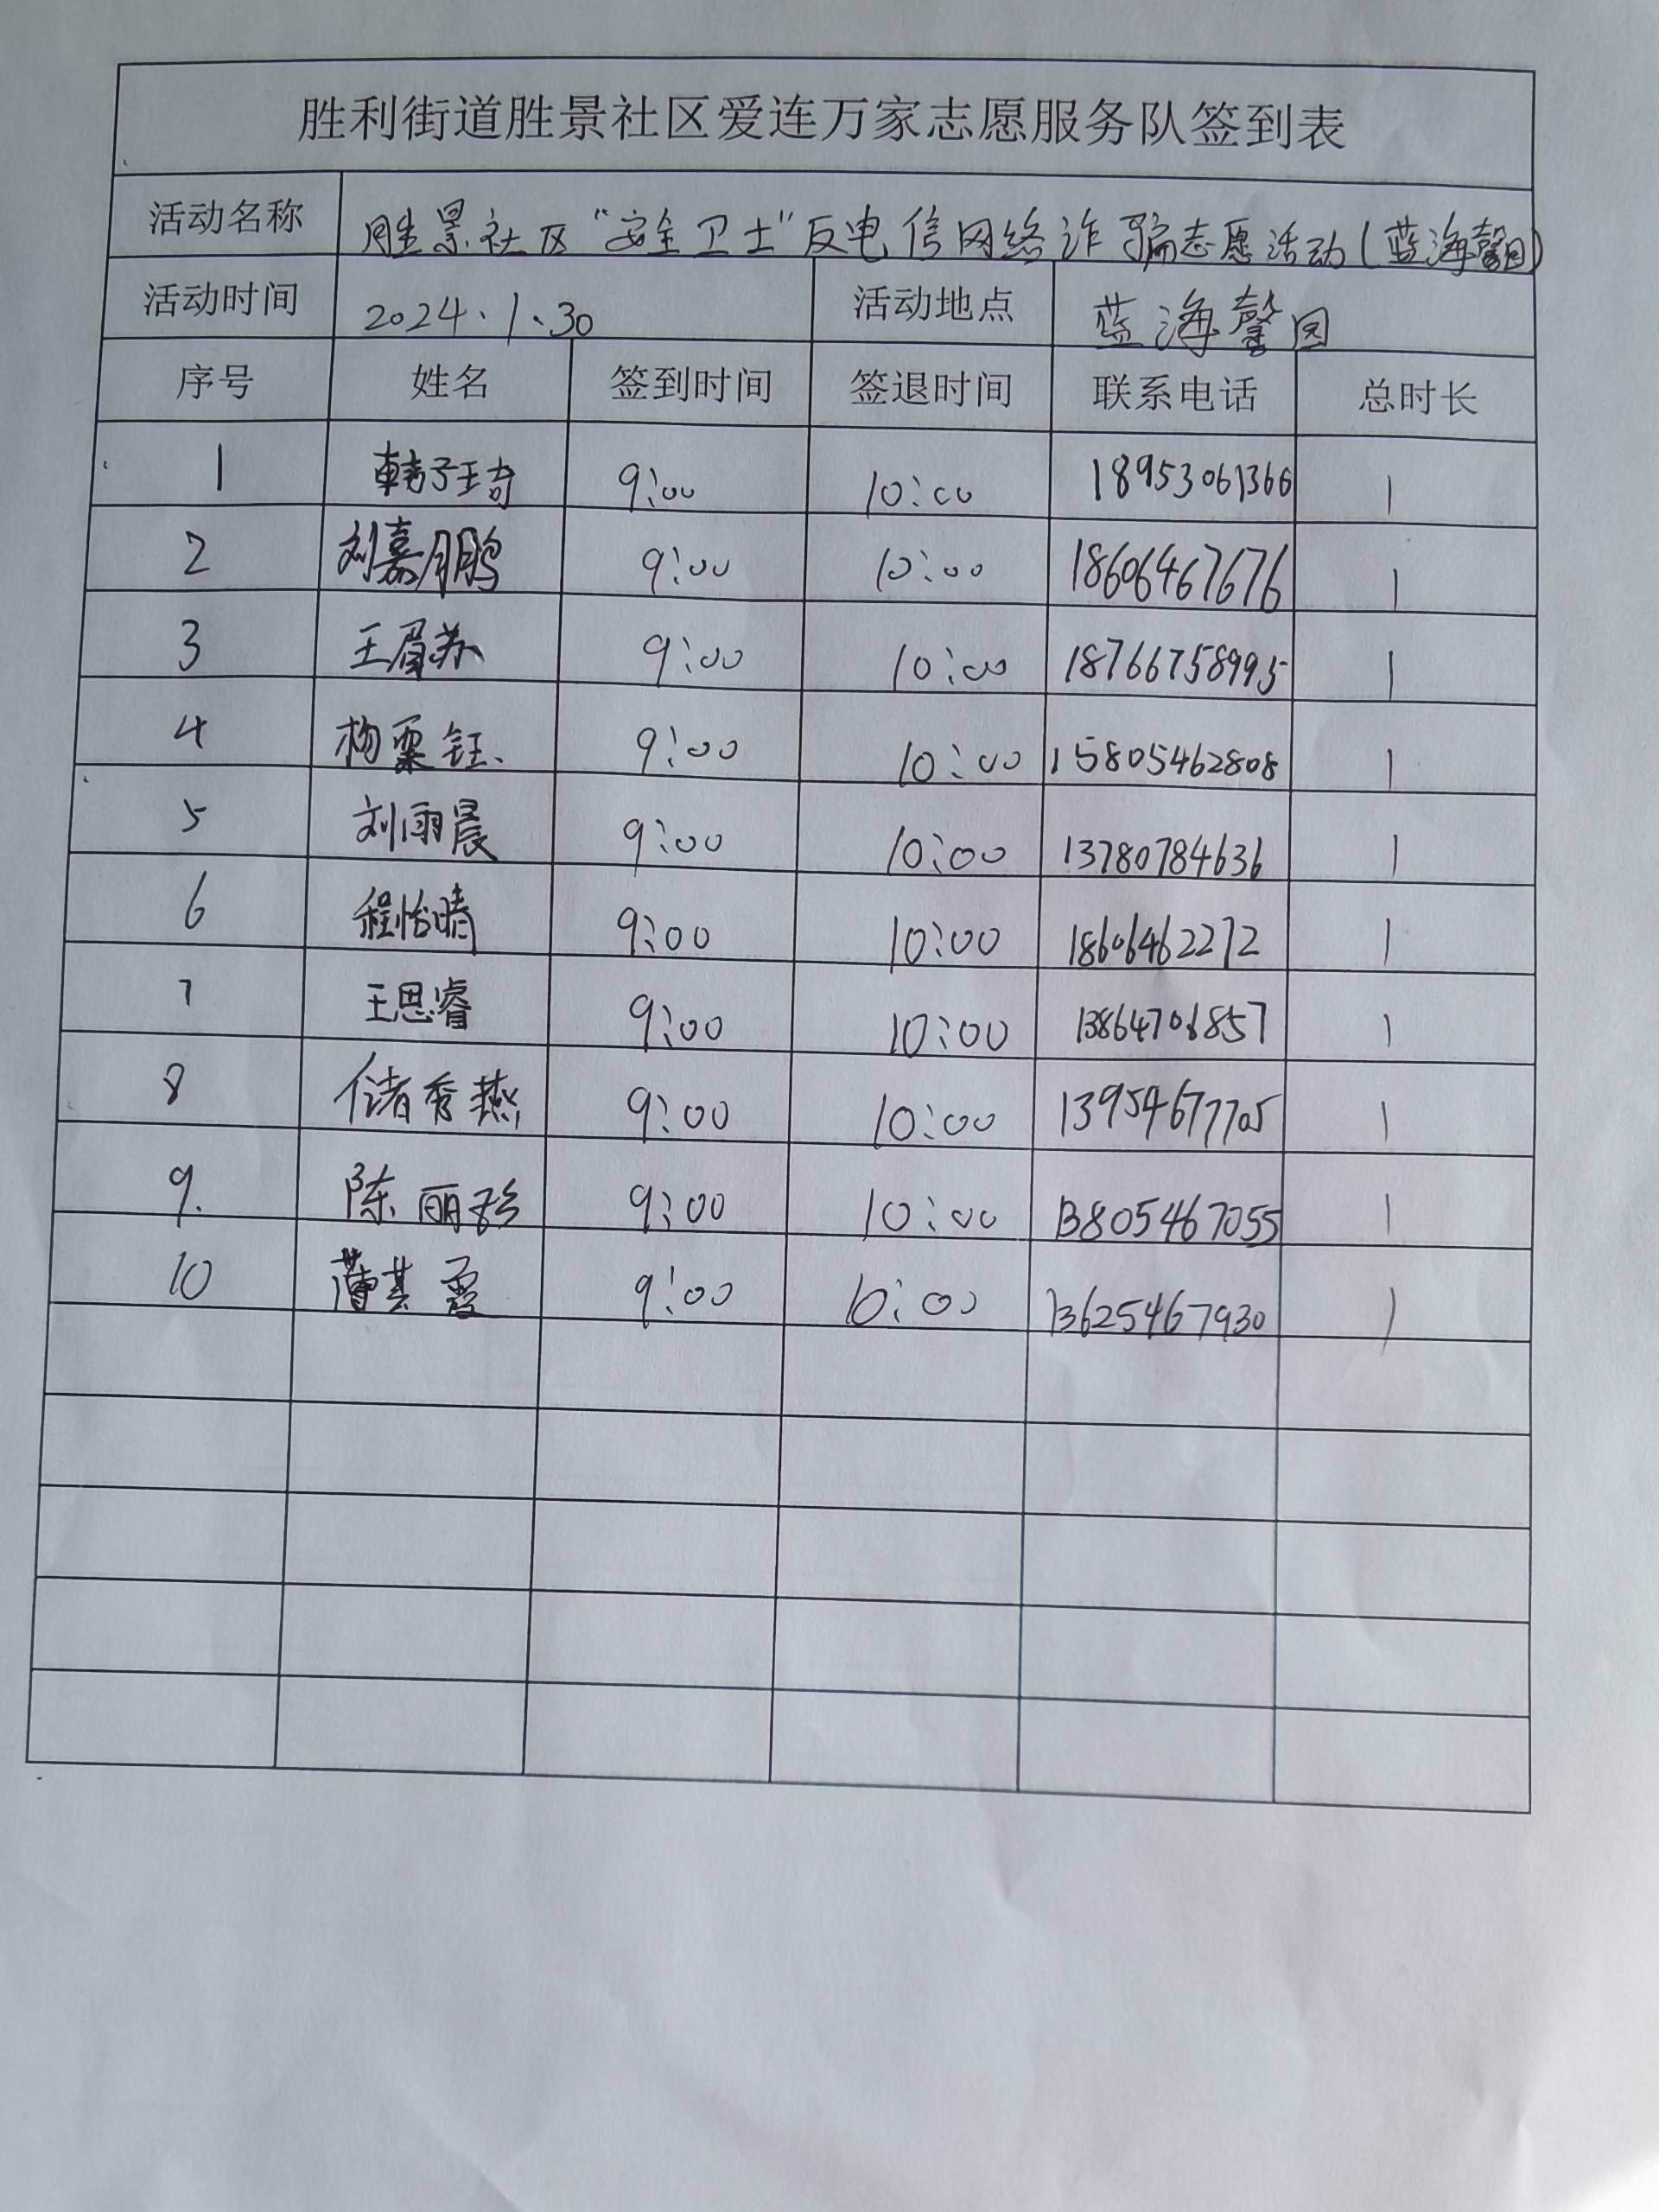 胜利街道胜景社区爱连万家志愿服务队签到表
活动名称 胜景社区“安全卫士”反电信网络诈骗志愿活动(蓝海馨园)
活动时间 2024.1.30 活动地点 蓝海馨园
序号 姓名 签到时间 签退时间 联系电话 总时长
1 韩子琦 9:00 10:00 18953061366 1
2 刘嘉鹏 9:00 10:00 18606467676 1
3 王眉苏 9:00 10:00 18766758995 1
4 杨粟钰 9:00 10:00 15805462808 1
5 刘雨晨 9:00 10:00 13780784636 1
6 程怡晴 9:00 10:00 18606462272 1
7 王思睿 9:00 10:00 13864706857 1
8 储秀燕 9:00 10:00 13954677705 1
9. 陈丽珍 9:00 10:00 13805467055 1
10 薄其霞 9:00 10:00 13625467930 1